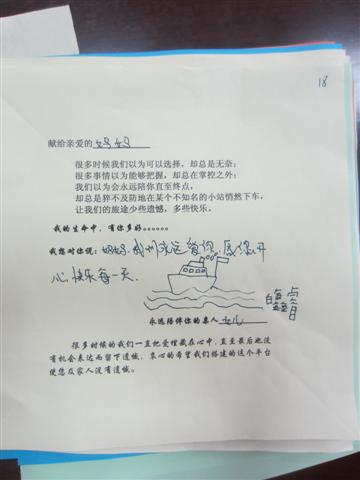 18
献给亲爱的 妈妈
很多时候我们以为可以选择，却总是无奈；
很多事情以为能够把握，却总在掌控之外；
我们以为会永远陪你直至终点，
却总是猝不及防地在某个不知名的小站悄然下车，
让我们的旅途少些遗憾，多些快乐。
我的生命中，有你多好······
我想对你说：妈妈，我永远爱你，愿你开
心快乐每一天.
永远陪伴你的亲人 女儿
很多时候的我们一直把爱埋藏在心中，直至最后也没
有机会表达而留下遗憾，衷心的希望我们搭建的这个平台
使您及家人没有遗憾。